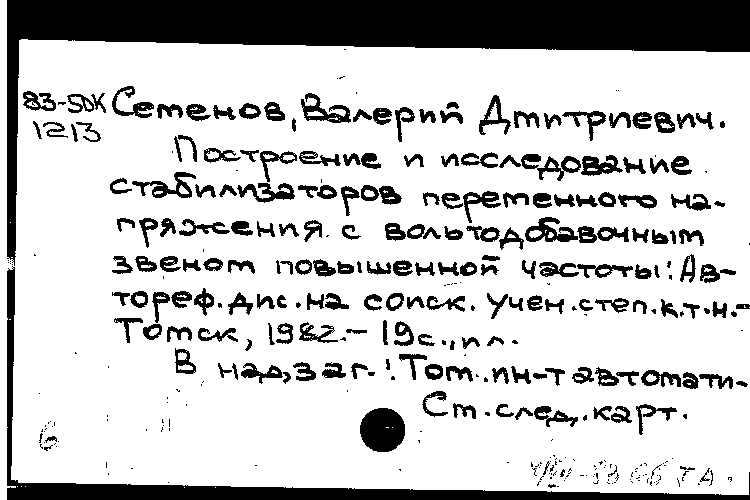 83-5DK Семенов, Валерий Дмитриевич.
1213
Построение и исследование
стабилизаторов переменного на-
пряжения с вольтодобавочным
звеном повышенной частоты: Ав-
тореф. дис. на соиск. учен. степ. к.т.н.-
Томск, 1982.- 19 с., ил.
В надзаг.: Том. ин-т автомати-
См. след. карт.
6